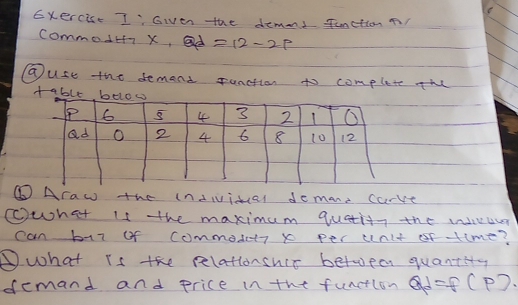 Exercise I: Given the demand function for
Commodity X, Qd = 12 - 2P
(a) Use the demand function to complete the
table below
P 6 5 4 3 2 1 0
Qd 0 2 4 6 8 10 12
(b) Araw the individual demand curve
(c) what is the maximum the
can of commodity X per unit of time?
(d) what is the relationship between quantity
demand and price in the function Qd = f(P).